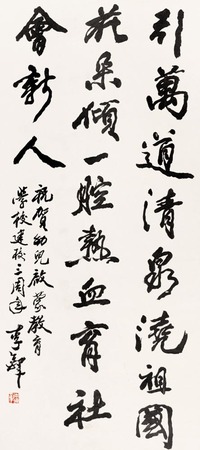 引萬道清泉澆祖國
花朵傾一腔熱血育社
會新人
祝賀幼兒啟蒙教育
學校建校三周年 李鐸